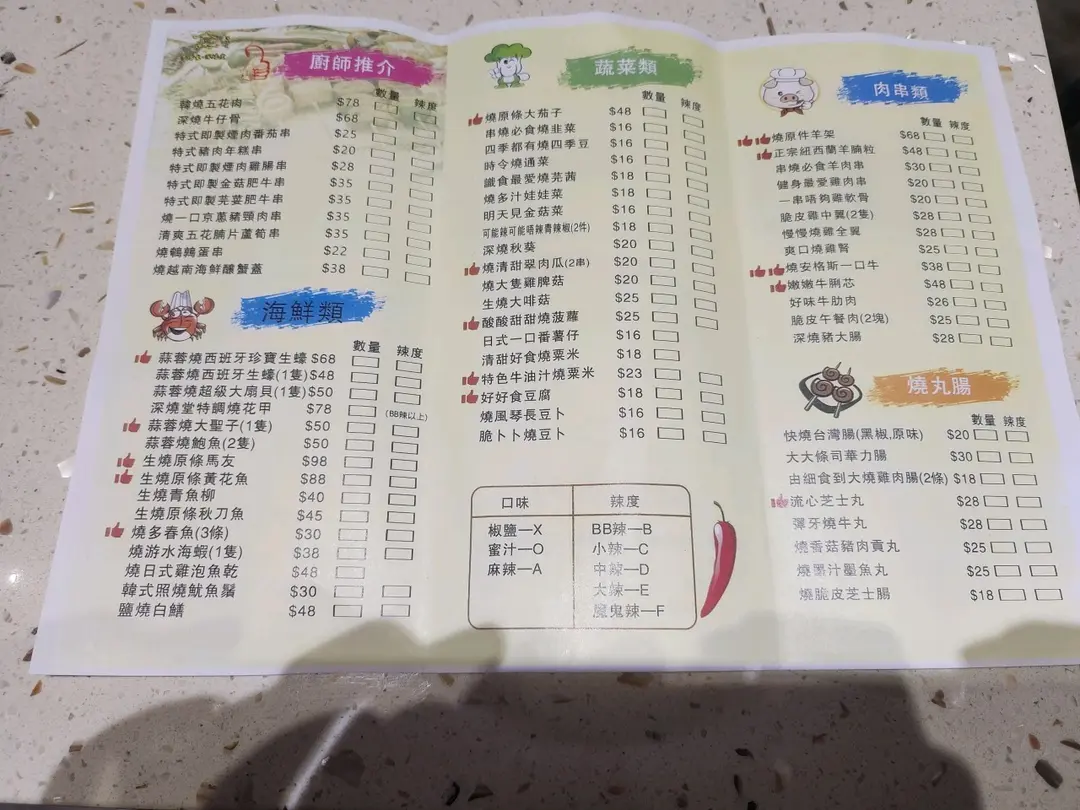 廚師推介
數量 辣度
韓燒五花肉 $78
深燒牛仔骨 $68
特式即製煙肉番茄串 $25
特式豬肉年糕串 $20
特式即製煙肉雞腸串 $28
特式即製金菇肥牛串 $35
特式即製芫荽肥牛串 $35
燒一口京蔥豬頸肉串 $35
清爽五花腩片蘆筍串 $35
燒鵪鶉蛋串 $22
燒越南海鮮釀蟹蓋 $38
海鮮類
數量 辣度
蒜蓉燒西班牙珍寶生蠔 $68
蒜蓉燒西班牙生蠔(1隻) $48
蒜蓉燒超級大扇貝(1隻) $50
深燒堂特調燒花甲 $78 (BB辣以上)
蒜蓉燒大聖子(1隻) $50
蒜蓉燒鮑魚(2隻) $50
生燒原條馬友 $98
生燒原條黃花魚 $88
生燒青魚柳 $40
生燒原條秋刀魚 $45
燒多春魚(3條) $30
燒游水海蝦(1隻) $38
燒日式雞泡魚乾 $48
韓式照燒魷魚鬚 $30
鹽燒白鱔 $48
蔬菜類
數量 辣度
燒原條大茄子 $48
串燒必食燒韭菜 $16
四季都有燒四季豆 $16
時令燒通菜 $16
識食最愛燒芫茜 $18
燒多汁娃娃菜 $18
明天見金菇菜 $16
可能辣可能唔辣青辣椒(2件) $18
深燒秋葵 $20
燒清甜翠肉瓜(2串) $20
燒大隻雞脾菇 $20
生燒大啡菇 $25
酸酸甜甜燒菠蘿 $25
日式一口番薯仔 $16
清甜好食燒粟米 $18
特色牛油汁燒粟米 $23
好好食豆腐 $18
燒風琴長豆卜 $16
脆卜卜燒豆卜 $16
口味 辣度
椒鹽—X BB辣—B
蜜汁—O 小辣—C
麻辣—A 中辣—D
大辣—E
魔鬼辣—F
肉串類
數量 辣度
燒原件羊架 $68
正宗紐西蘭羊腩粒 $48
串燒必食羊肉串 $30
健身最愛雞肉串 $20
一串唔夠雞軟骨 $20
脆皮雞中翼(2隻) $28
慢慢燒雞全翼 $28
爽口燒雞腎 $25
燒安格斯一口牛 $38
嫩嫩牛脷芯 $48
好味牛肋肉 $26
脆皮午餐肉(2塊) $25
深燒豬大腸 $28
燒丸腸
數量 辣度
快燒台灣腸(黑椒,原味) $20
大大條司華力腸 $30
由細食到大燒雞肉腸(2條) $18
流心芝士丸 $28
彈牙燒牛丸 $28
燒香菇豬肉貢丸 $25
燒墨汁墨魚丸 $25
燒脆皮芝士腸 $18